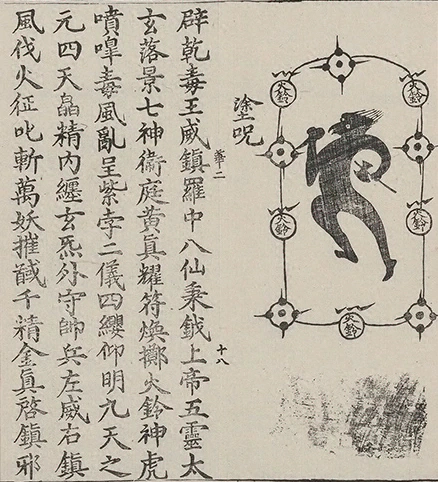 火鈴
火鈴
火鈴
火鈴
火鈴
塗呪
華二
十八
辟乾毒王威鎮羅中八仙秉鉞上帝五靈太
玄落景七神衞庭黃眞耀符煥擲火鈴神虎
噴嘷毒風亂呈紫孛二儀四纓仰明九天之
元四天晶精内纏玄炁外守帥兵左威右鎮
風伐火征叱斬萬妖摧馘千精金眞啓鎮邪